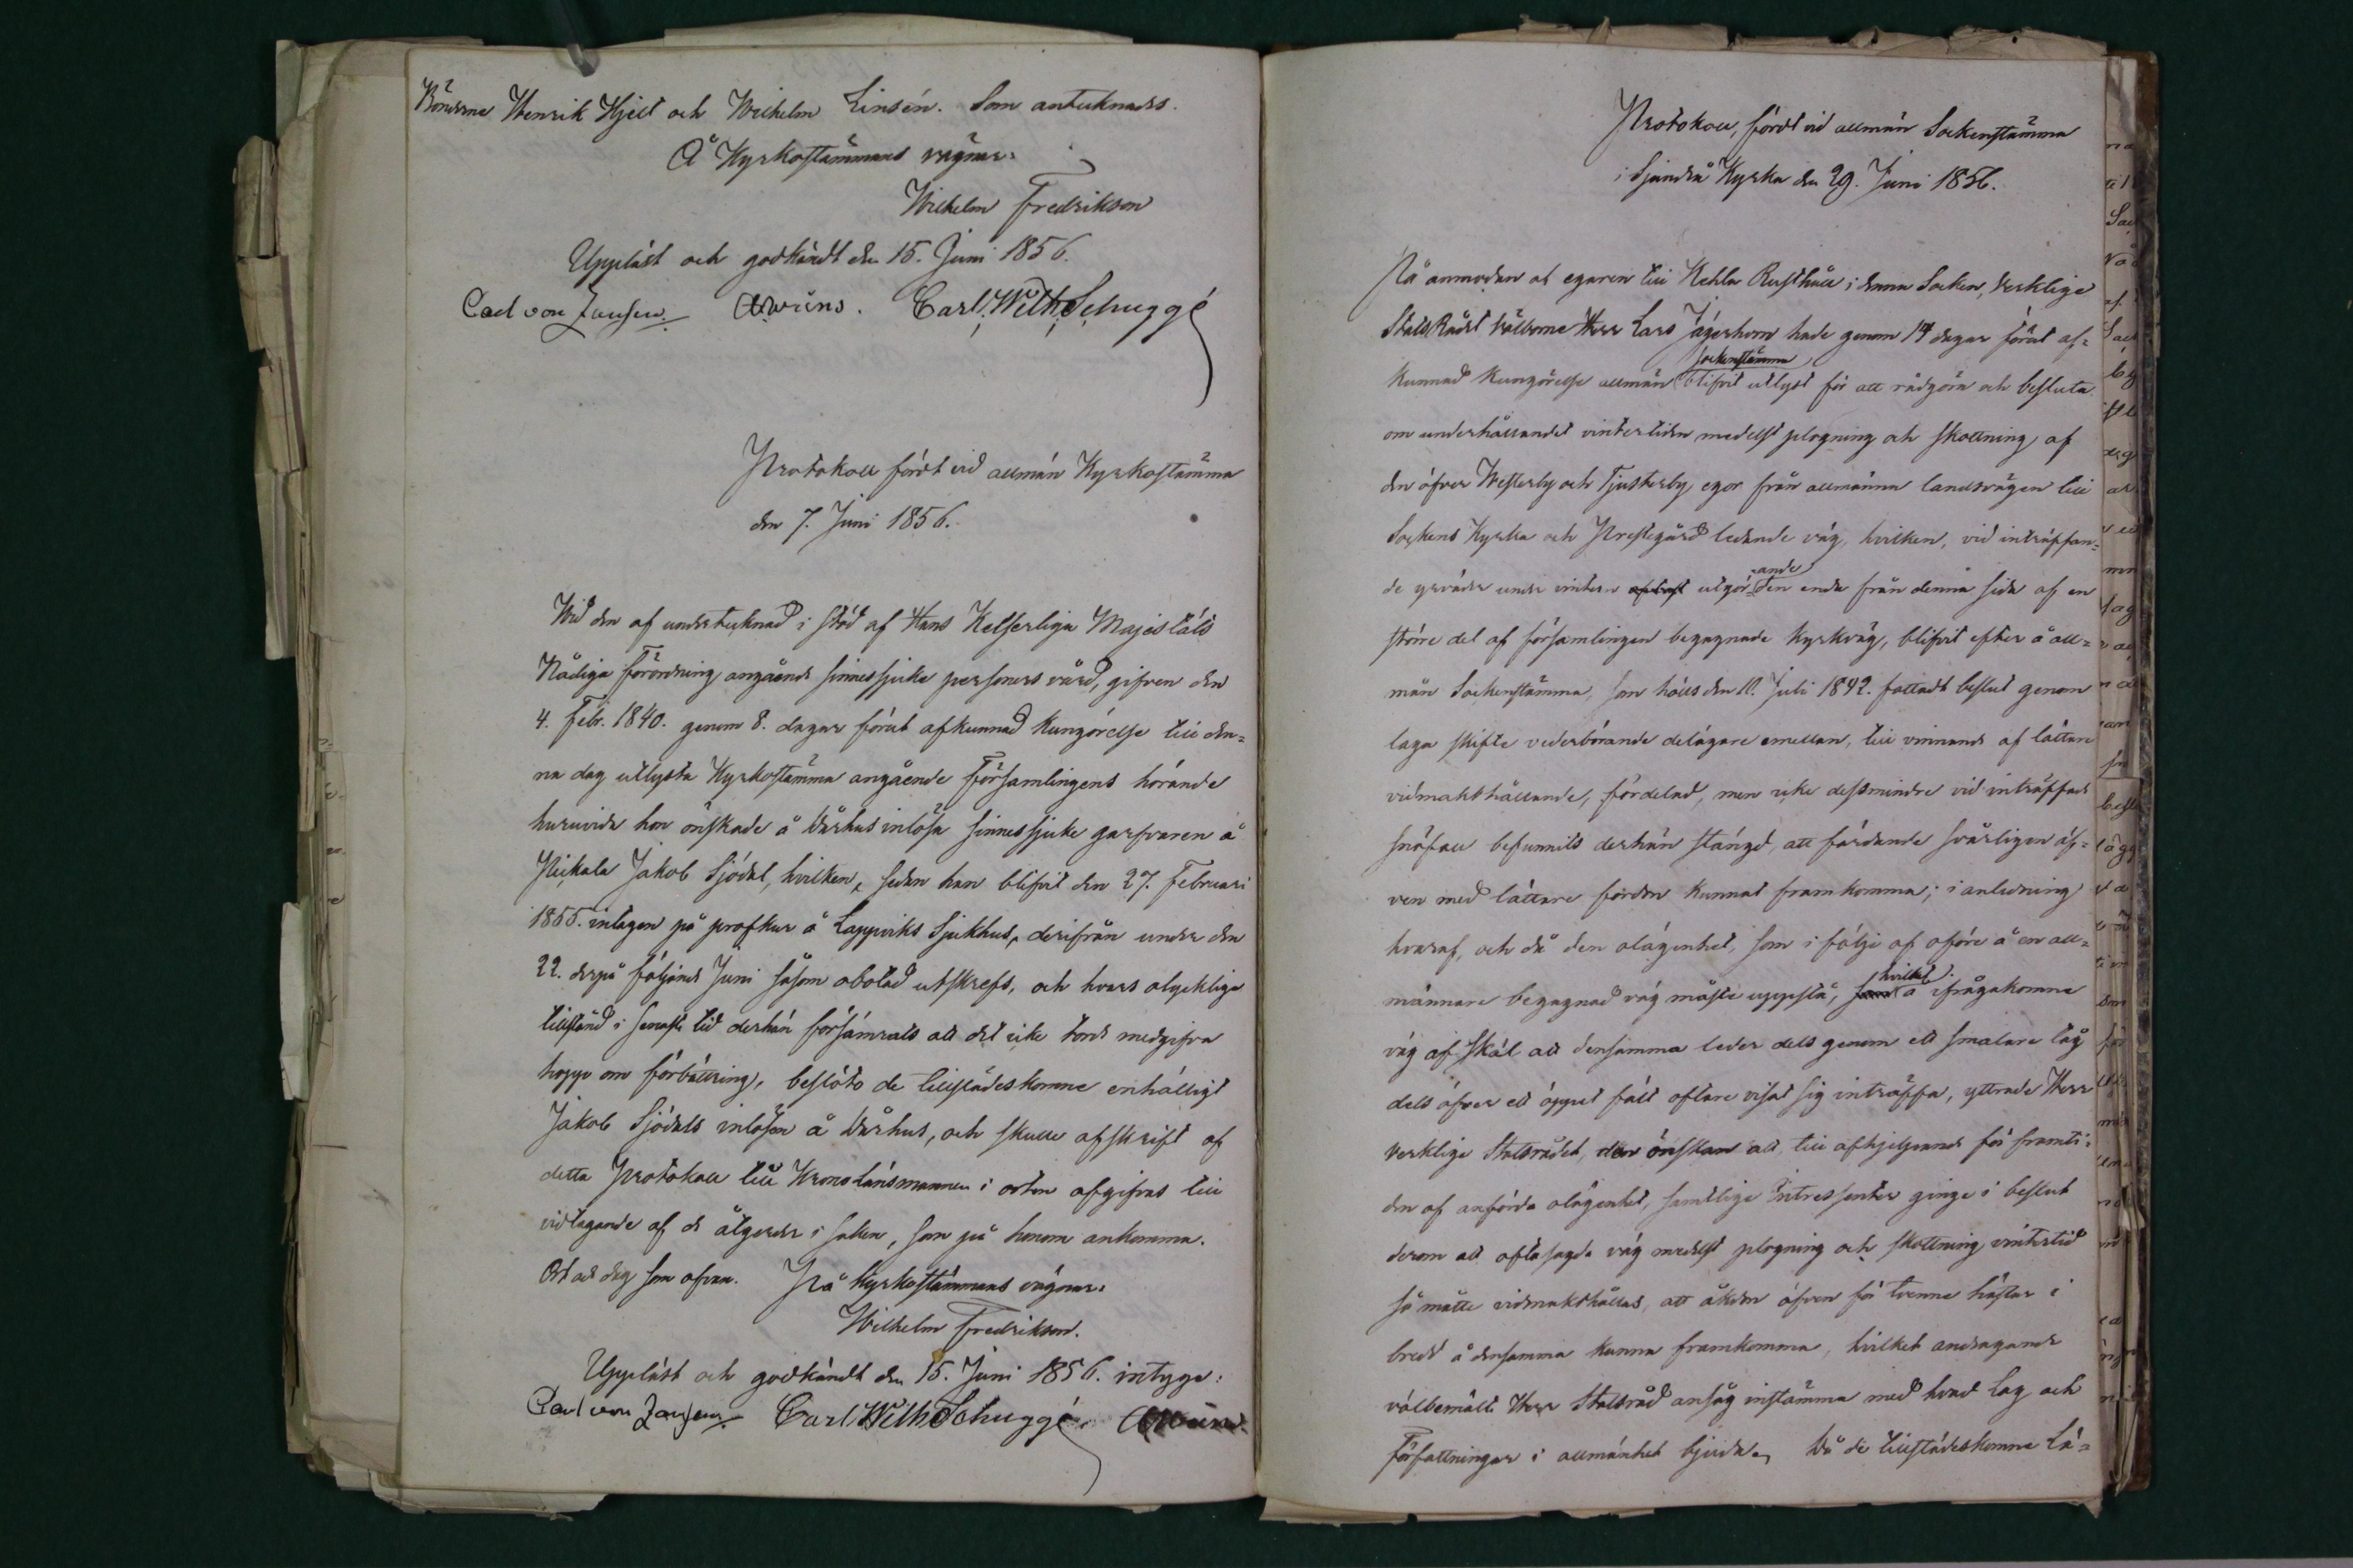 Bönderne Henrik Hjelt och Wilhelm Linsén. Som antecknades.
Å Kyrkostämmans vägnar:
Wilhelm Fredrikson
Uppläst och godkändt den 15. Juni 1856.
Carl von Jansen. Carl Wilh Schuggé
Protokoll fördt vid allmän Kyrkostämma
den 7. Juni 1856.
Wid den af undertecknad i stöd af Hans Kejserliga Majestäts
Nådiga Förordning angående sinnessjuke personers vård, gifven den
4. Febr. 1840. genom 8. dagar förut afkunnad kungörelse till den-
na dag utlysta Kyrkostämma angående Församlingens hörande
huruvida hon önskade å dårhus inlösa sinnessjuke garfvaren å
Pickala Jakob Sjödal, hvilken, sedan han blifvit den 27. Februari
1855. intagen på profkur å Lappviks Sjukhus, derifrån under den
22. derpå följande Juni såsom obotlad utskrefs, och hvars olyckliga
tillstånd i senaste tid derhän försämrats att det icke torde medgifva
hopp om förbättring, beslöto de tillstädeskomne enhälligt
Jakob Sjödals inlösen å dårhus, och skulle afskrift af
detta Protokoll till Kronolänsmannen i orten afgifvas till
vidtagande af de åtgerder i saken, som på honom ankomma.
Ort och dag som ofvan. På Kyrkostämmans vägnar:
Wilhelm Fredrikson.
Uppläst och godkändt den 15. Juni 1856. intyga:
Carl von Jansen Carl Wilh Schuggé
Protokoll, fördt vid allmän Sockenstämma
i Sjundeå Kyrka den 29. Juni 1856.
På anmodan af egaren till Kehla Rusthåll i denna Socken, Verklige
StatsRådet Välborne Herr Lars Jägerhorn hade genom 14 dagar förut af-
kunnad kungörelse allmän sockenstämma blifvit utlyst för att rådgöra och besluta
om underhållandet vintertiden medelst plogning och skottning af
den öfver Westerby och Tjusterby egor från allmänna landsvägen till
Sockens Kyrka och Prestegård ledande väg, hvilken, vid inträffan-
de yrväder under vintern utgörande den enda från denna sida af en
större del af församlingen begagnade kyrkväg, blifvit efter å all-
män Sockenstämma, som hölls den 10. Juli 1842. fattadt beslut genom
laga skifte vederbörande delägare emellan, till vinnande af lättare
vidmakthållande, fördelad, men icke dessmindre vid inträffade
snöfall befunnits derhän stängd, att färdande svårligen äf-
ven med lättare fordon kunnat framkomma; i anledning
hvaraf, och då den olägenhet, som i följe af oföre å en all-
männare begagnad väg måste uppstå, hvilket å ifrågakomne
väg af skäl att densamma leder dels genom ett smalare tåg
dels öfver ett öppet fält oftare visat sig inträffa, yttrade Herr
Verklige Statsrådet, den önskan att, till afhjelpande för framti-
den af anförda olägenhet, samtlige Intressenter ginge i beslut
derom att oftasagde väg medelst plogning och skottning vintertid
så måtte vidmakthållas, att åkdon äfven för tvenne hästar i
bredd å densamma kunna framkomma, hvilket andragande
välbemälte Herr Statsråd ansåg instämma med hvad Lag och
Författningar i allmänhet bjuda. Då de tillstädeskomne Lä-